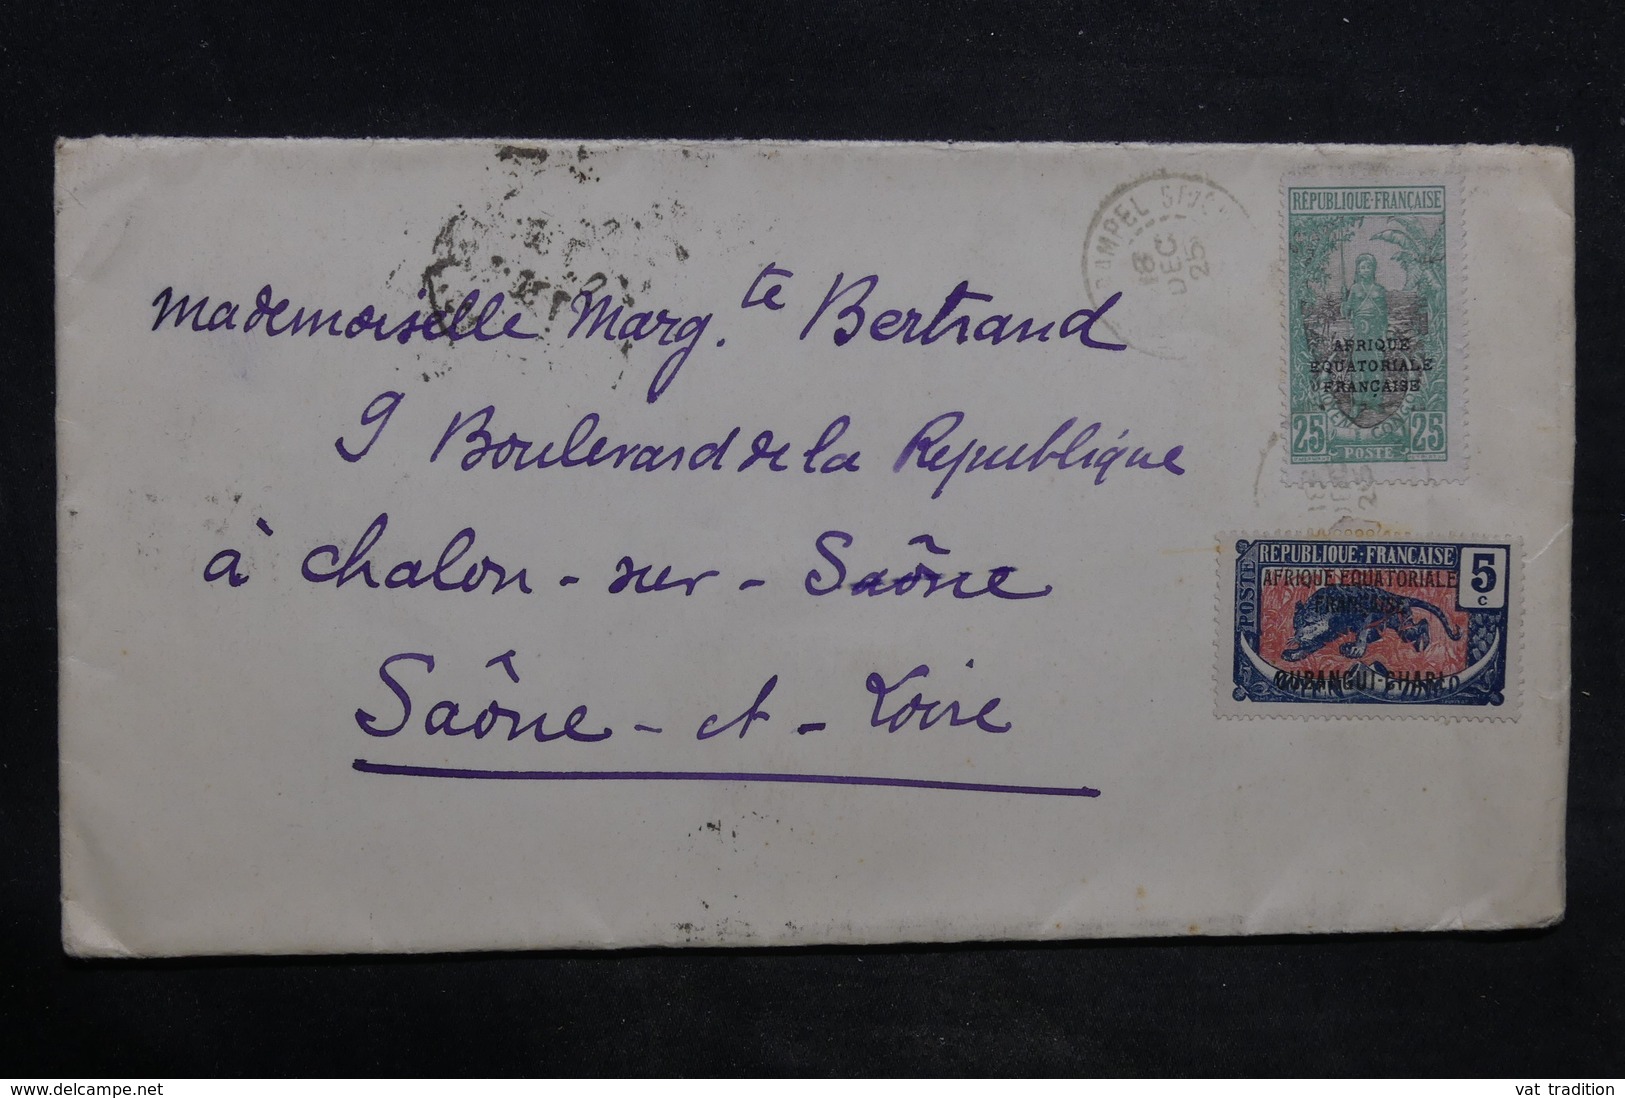 mademoiselle Marg.te Bertrand
9 Boulevard de la Republique
à Chalon-sur-Saône
Saône-et-Loire
18
DEC
25
RÉPUBLIQUE·FRANÇAISE
AFRIQUE
EQUATORIALE
FRANÇAISE
25 POSTE 25
RÉPUBLIQUE·FRANÇAISE 5
c
POSTE
AFRIQUE EQUATORIALE
FRANÇAISE
OUBANGUI-CHARI
www.delcampe.net
vat_tradition